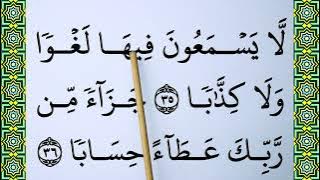 لَّا يَسْمَعُونَ فِيهَا لَغْوًا
وَلَا كِذَّٰبًا ٣٥ جَزَآءً مِّن
رَّبِّكَ عَطَآءً حِسَابًا ٣٦